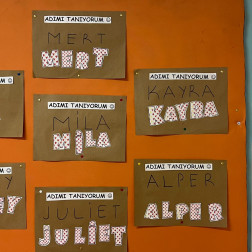 ADIMI TANIYORUM
MERT
MERT
ADIMI TANIYORUM
KAYRA
KAYRA
ADIMI TANIYORUM
MİLA
MİLA
ADIMI TANIYORUM
ALPER
ALPER
ADIMI TANIYORUM
JULIET
JULIET